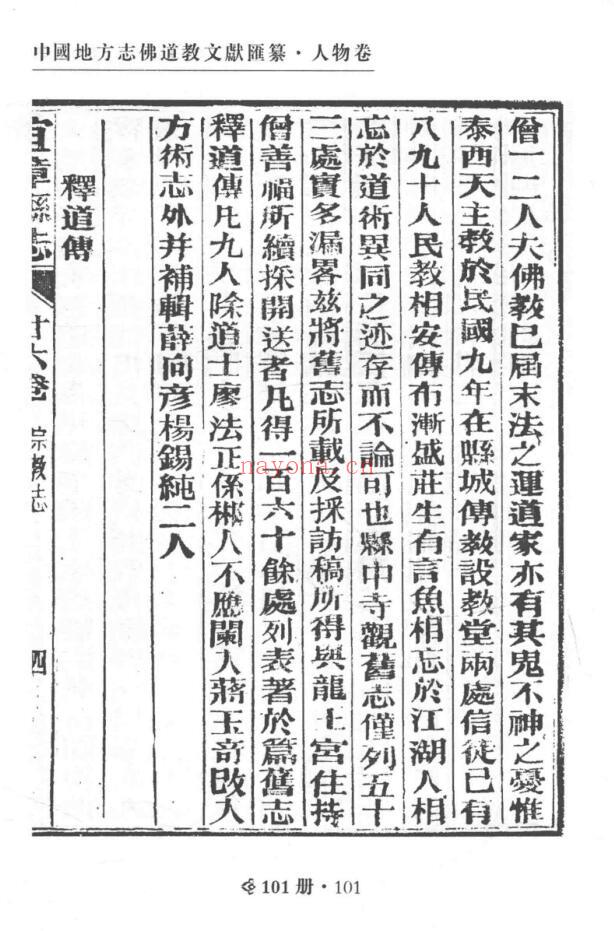 中國地方志佛道教文獻匯纂·人物卷
僧一二人夫佛教已屆末法之運道家亦有其鬼不神之憂惟
泰西天主教於民國九年在縣城傳教設教堂兩處信徒已有
八九十人民教相安傳布漸盛莊生有言魚相忘於江湖人相
忘於道術異同之迹存而不論可也縣中寺觀舊志僅列五十
三處實多漏畧茲將舊志所載及採訪稿所得與龍上宮住持
僧善福所續採開送者凡得一百六十餘處列表著於篇舊志
釋道傳凡九人除道士廖法正係郴人不應闌入蔣玉奇改入
方術志外并補輯薛向彥楊錫純二人
釋道傳
宜章縣志
廿六卷 宗教志
四
nayona.cn
101册·101